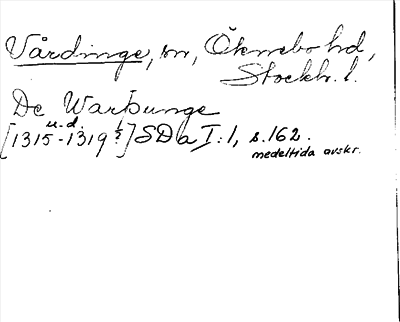 Vårdinge, sn, Öknebo hd,
Stockh. l.
De Warþunge
u.d.
[1315-1319 ½] SDa I:1, s.162.
medeltida avskr.